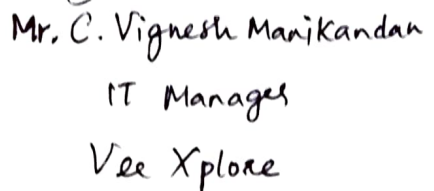 Mr. C. Vignesh Manikandan
IT Manager
Vee Xplore